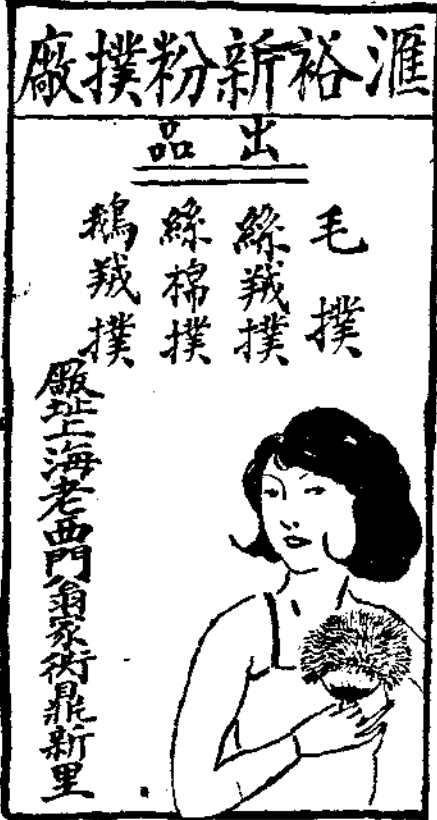 滙裕新粉撲廠
出品
毛撲
絲羢撲
絲棉撲
鵝羢撲
厰址上海老西門翁家衖鼎新里